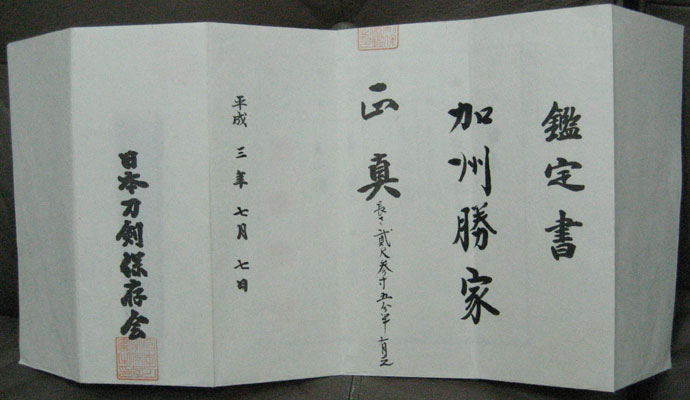 鑑定書
加州勝家
正真
長さ貳尺参寸五分半有之
平成三年七月七日
日本刀剣保存会